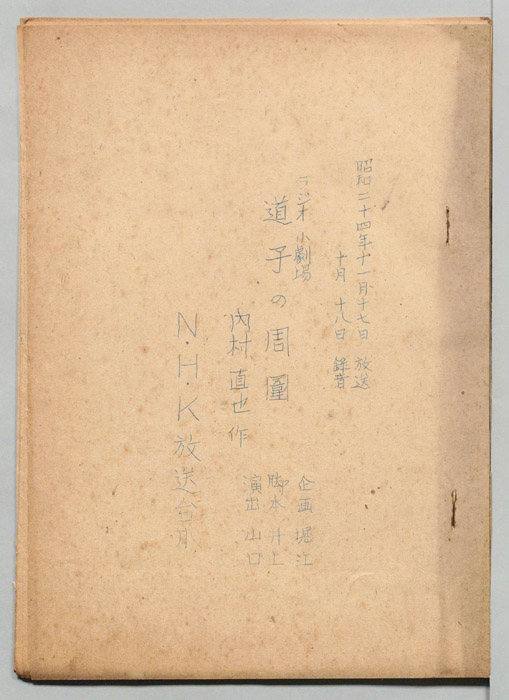 昭和二十四年十一月十七日 放送
十月 十八日 録音
ラジオ小劇場
道子の周圍
内村直也作
企画 堀江
脚本 井上
演出 山口
N・H・K放送台本